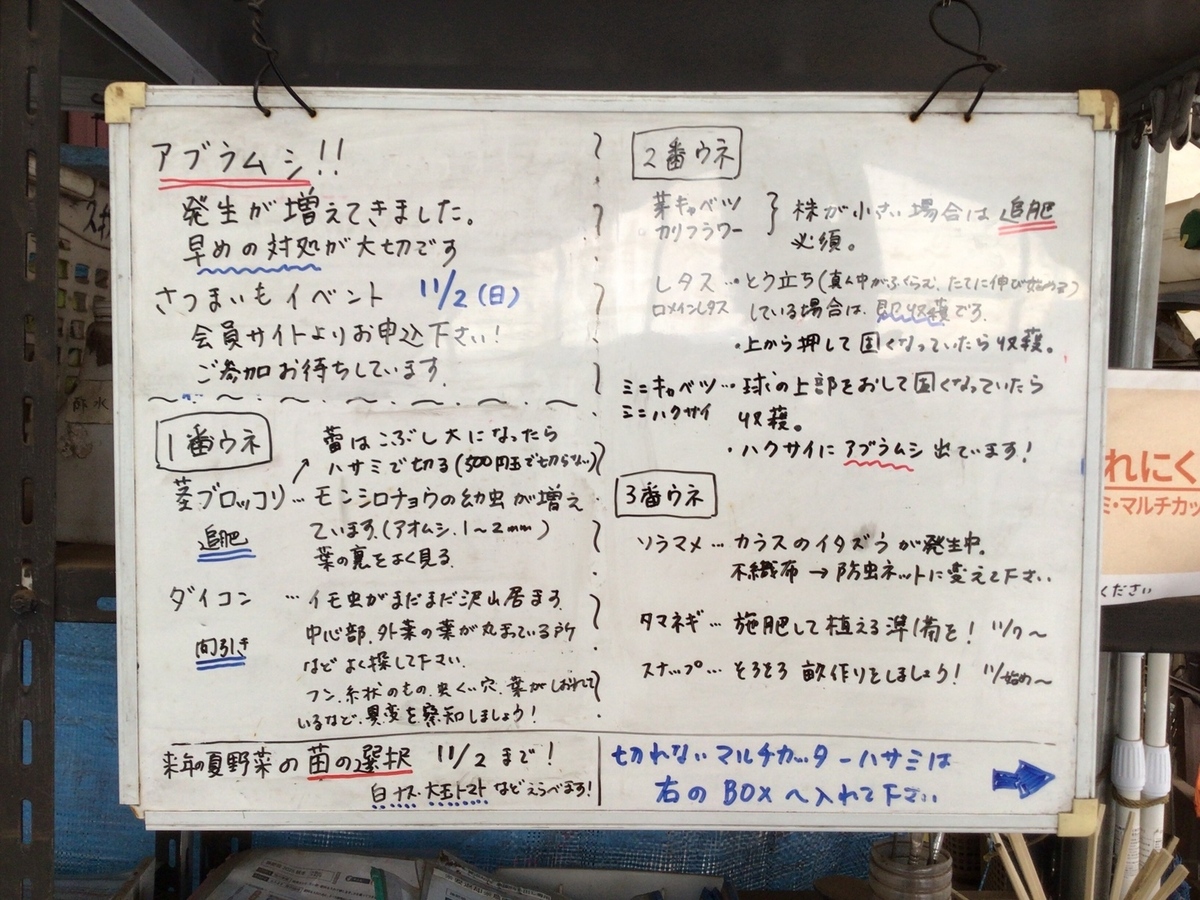 アブラムシ!!
発生が増えてきました。
早めの対処が大切です
さつまいもイベント 11/2(日)
会員サイトよりお申込下さい!
ご参加お待ちしています。
1番ウネ
蕾はこぶし大になったら
ハサミで切る(500円玉で切らない)
茎ブロッコリ… モンシロチョウの幼虫が増え
ています。(アオムシ.1~2mm)
追肥
葉の裏をよく見る.
ダイコン … イモ虫がまだまだ沢山居ます.
間引き
中心部.外葉の葉が丸まっている所
などよく探して下さい.
フン.糸状のもの.虫くい穴.葉がしおれて
いるなど.異変を察知しましょう!
来年の夏野菜の苗の選択 11/2 まで!
白ナス.大玉トマトなどえらべます!
2番ウネ
芽キャベツ
カリフラワー
株が小さい場合は追肥
必須。
レタス … とう立ち(真ん中がふくらむ、たてに伸び始める)
ロメインレタス している場合は.即収穫です.
・上から押して固くなっていたら収穫。
ミニキャベツ… 球の上部をおして固くなっていたら
ミニハクサイ 収穫。
・ハクサイにアブラムシ出ています!
3番ウネ
ソラマメ… カラスのイタズラが発生中.
不織布→防虫ネットに変えて下さい
タマネギ… 施肥して植える準備を! 11/7~
スナップ… そろそろ 畝作りをしましょう! 11/始め~
切れないマルチカッターハサミは
右のBOXへ入れて下さい
れにく
ミ・マルチカッ
ください
酢水